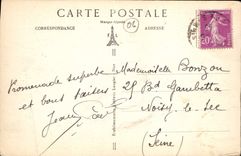 CARTE POSTALE
CORRESPONDANCE
ADRESSE
06
Promenade superbe
et bons baisers
Mademoiselle Bonzon
25 Bd Gambetta
Noisy le Sec
(Seine)